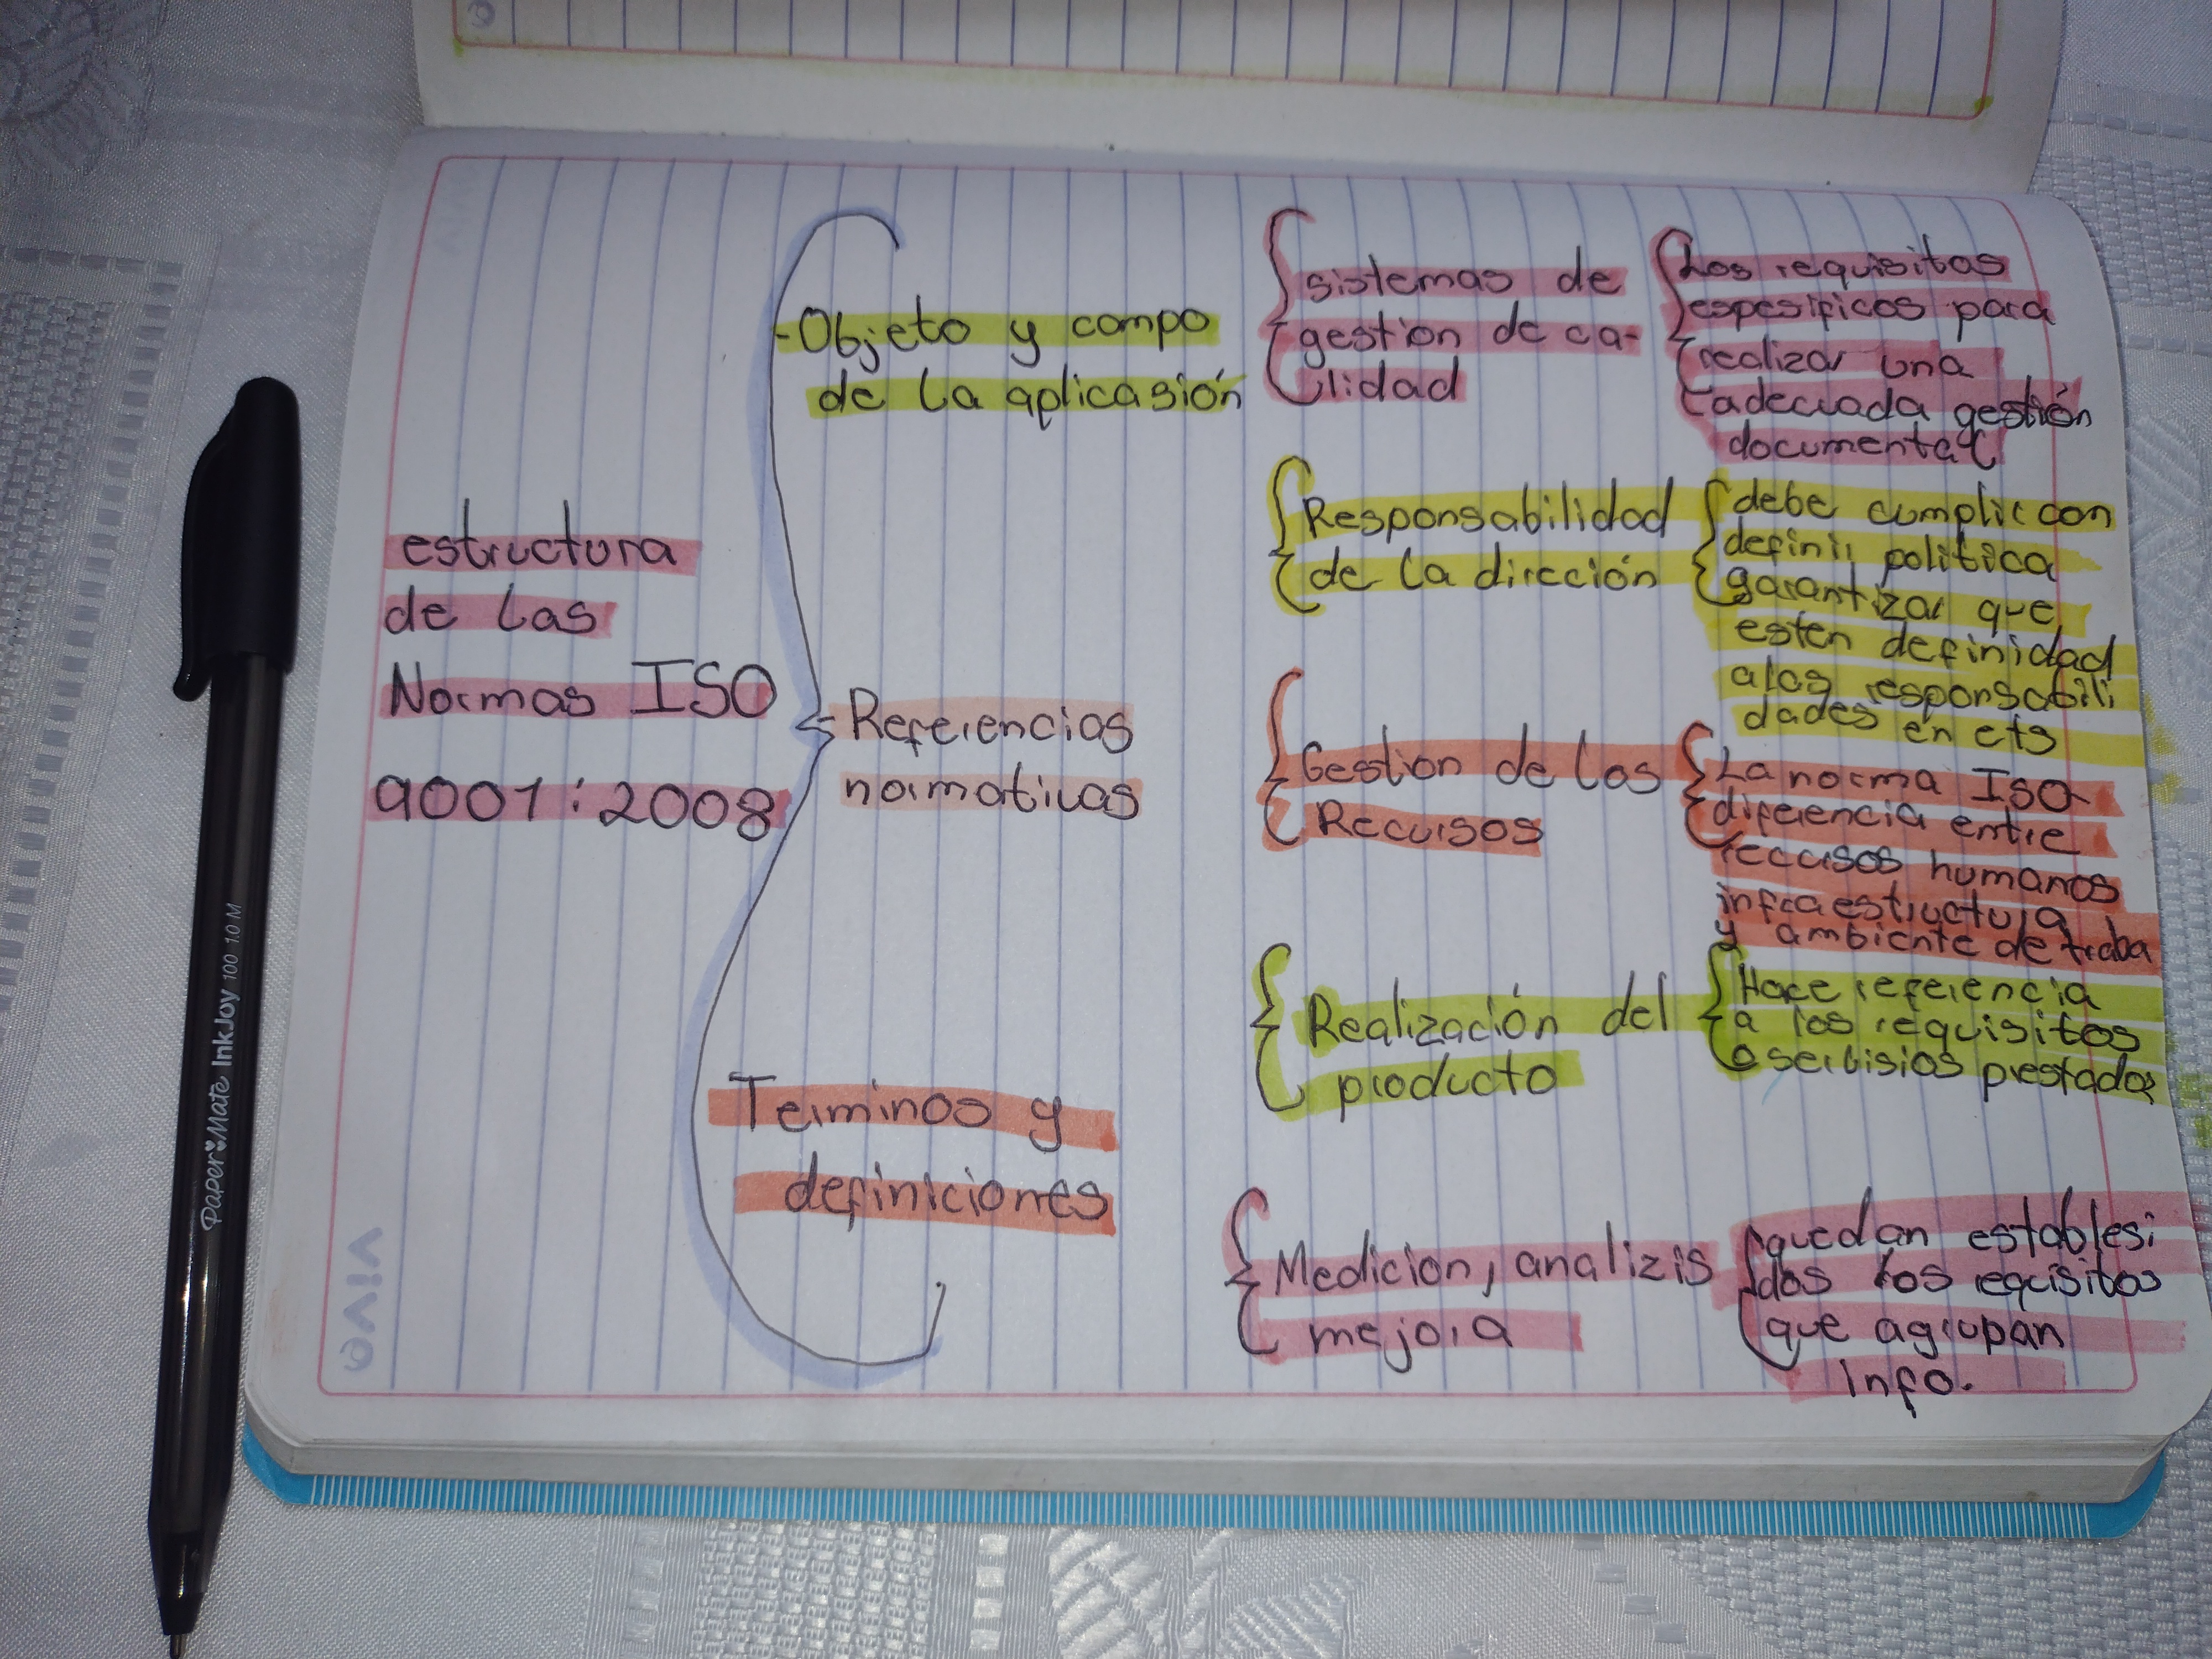 estructura
de las
Normas ISO
9001:2008
-Objeto y campo
de la aplicasión
Referencias
normativas
Terminos y
definiciones
sistemas de
gestion de ca-
lidad
Los requisitos
espesificos para
realizar una
adecuada gestión
documental
Responsabilidad
de la dirección
debe cumplir con
definir politica
garantizar que
esten definidad
alas responsabili
dades en ets
Gestion de los
Recursos
La norma ISO
diferencia entre
recursos humanos
infraestructura
y ambiente de traba
Realización del
producto
Hace referencia
a los requisitos
o serbisios prestados
Medicion, analizis
mejora
quedan establesi
dos los requisitos
que agrupan
info.
VIVA
PAPER MATE InkJoy 100 1.0 M